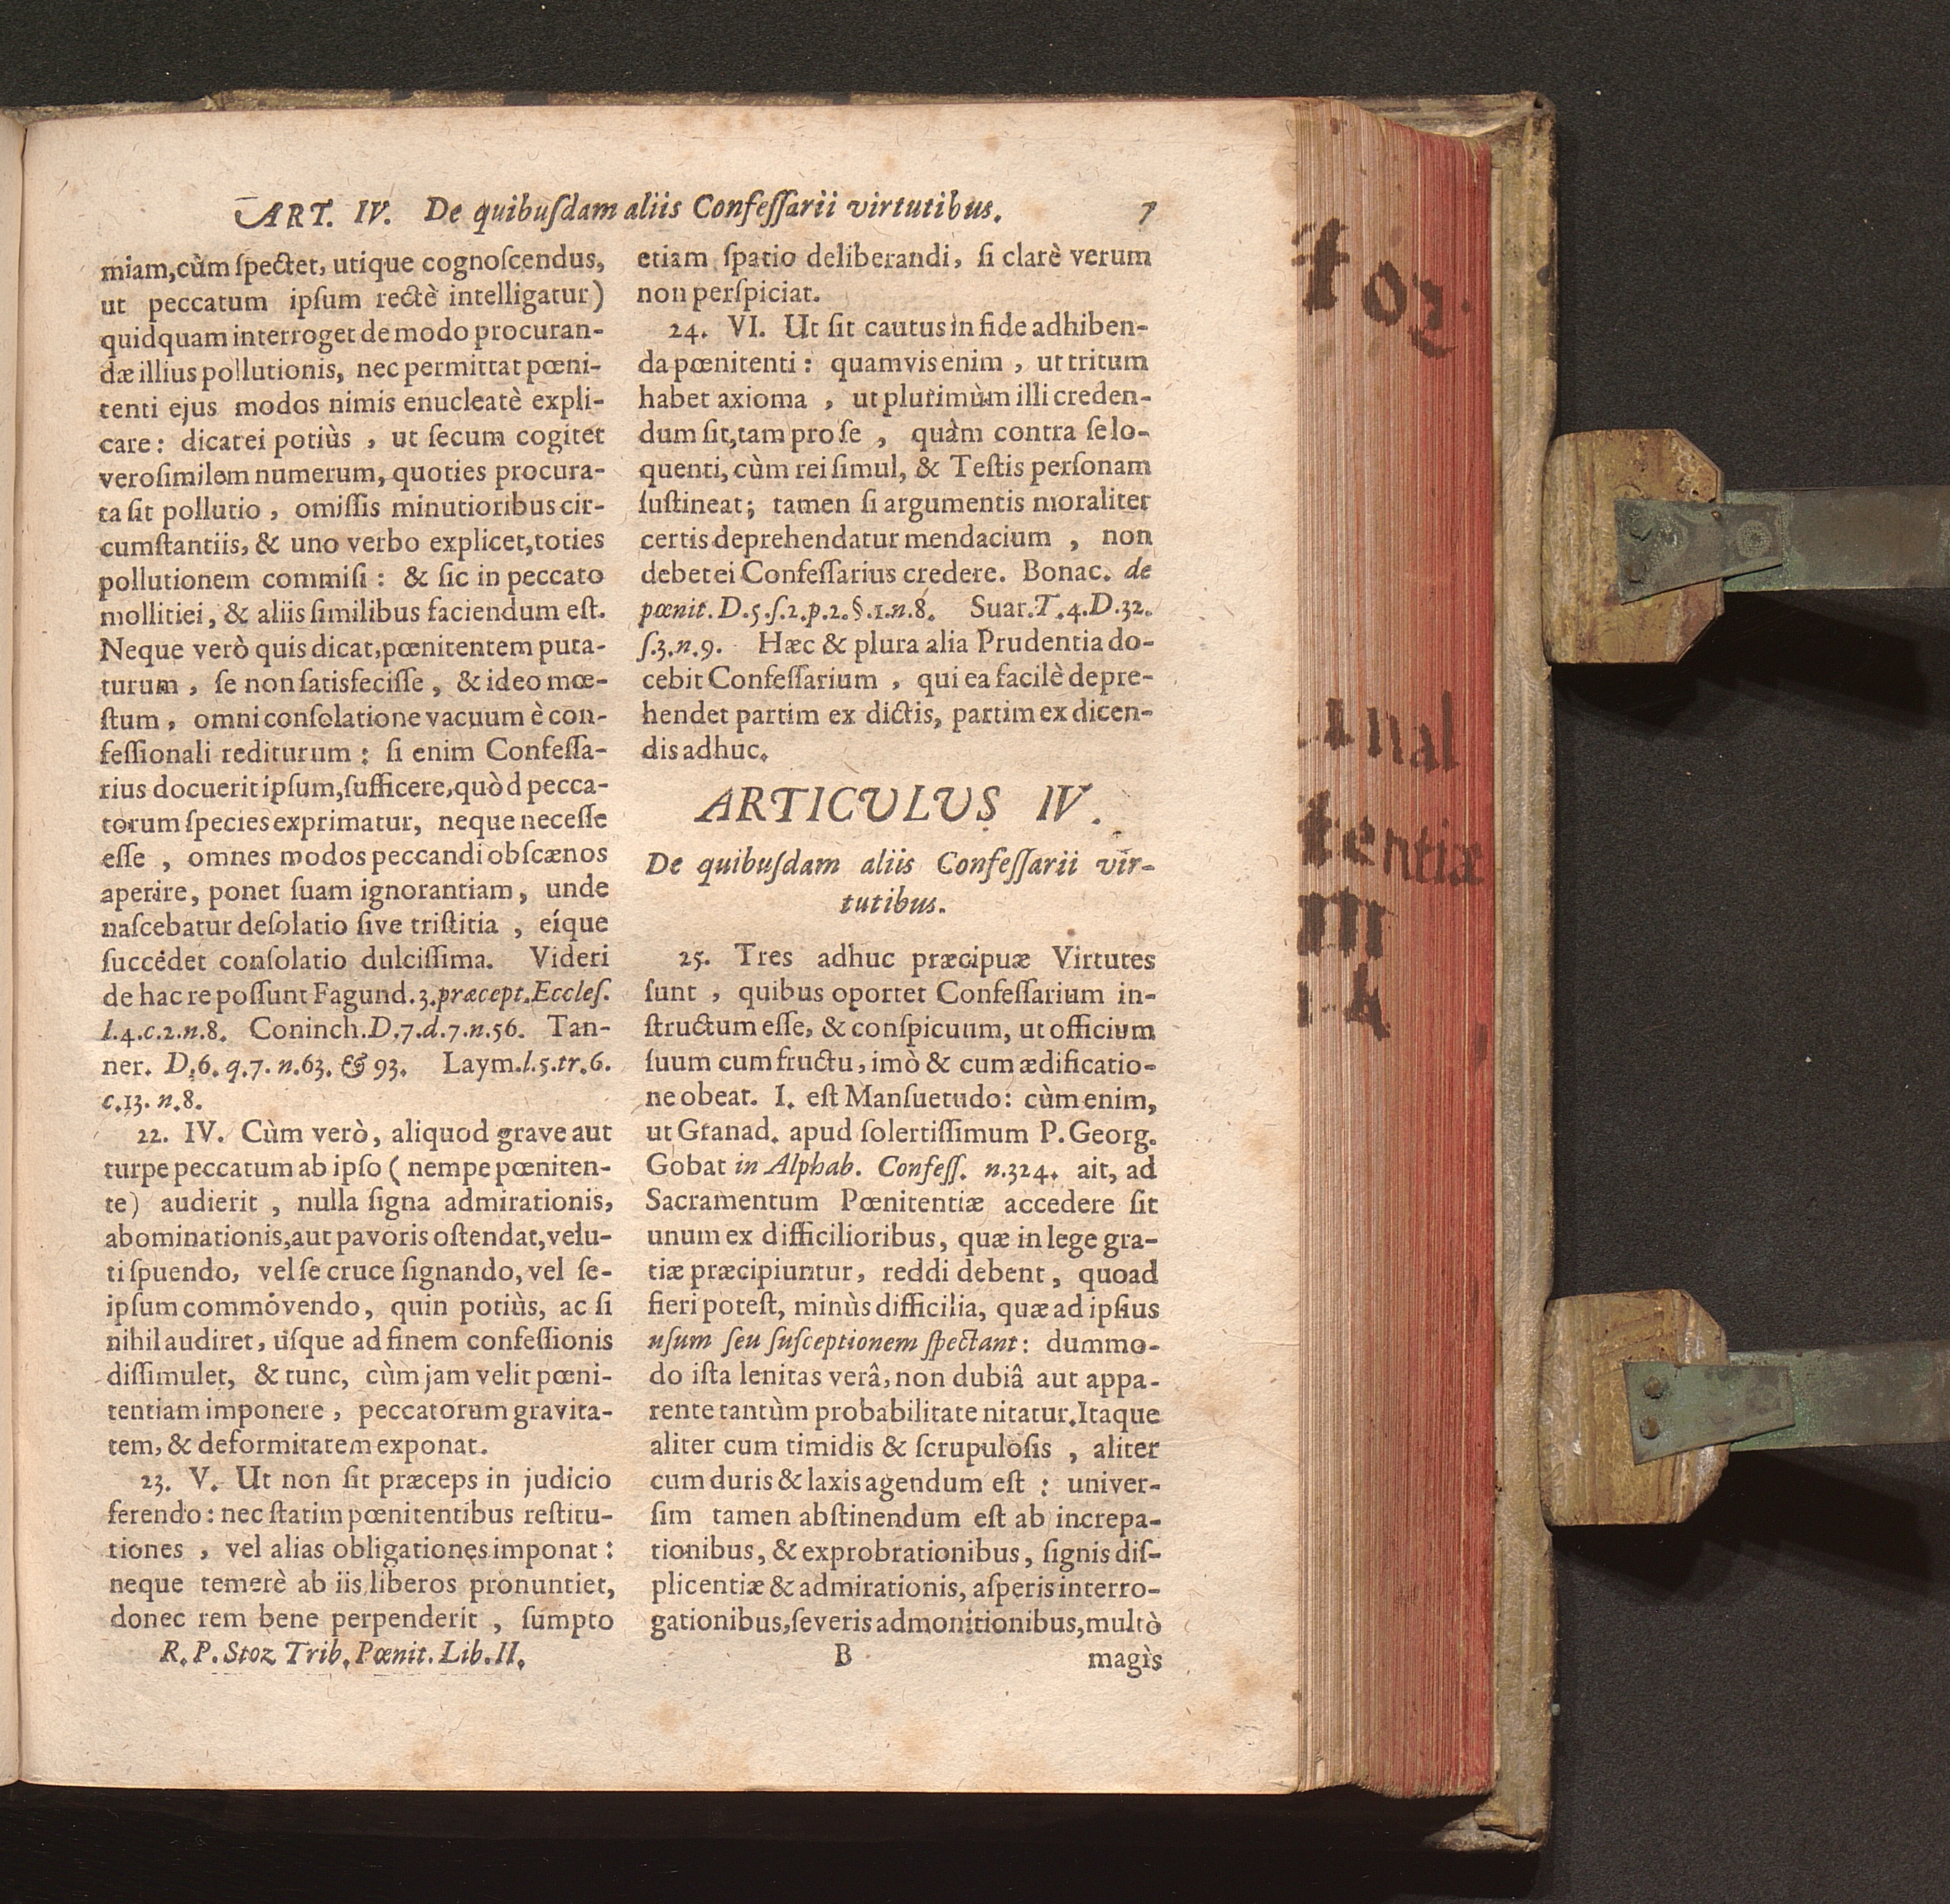 ART. IV. De quibuſdam aliis Confeſſarii virtutibus. 7
miam,cùm ſpectet, utique cognoſcendus,
ut peccatum ipſum rectè intelligatur)
quidquam interroget de modo procuran-
dæ illius pollutionis, nec permittat pœni-
tenti ejus modos nimis enucleatè expli-
care: dicat ei potiùs , ut ſecum cogitet
veroſimilem numerum, quoties procura-
ta ſit pollutio , omiſſis minutioribus cir-
cumſtantiis, & uno verbo explicet,toties
pollutionem commiſi : & ſic in peccato
mollitiei, & aliis ſimilibus faciendum eſt.
Neque verò quis dicat,pœnitentem puta-
turum , ſe non ſatisfeciſſe , & ideo mœ-
ſtum , omni conſolatione vacuum è con-
feſſionali rediturum : ſi enim Confeſſa-
rius docuerit ipſum,ſufficere,quòd pecca-
torum ſpecies exprimatur, neque neceſſe
eſſe , omnes modos peccandi obſcænos
aperire, ponet ſuam ignorantiam, unde
naſcebatur deſolatio ſive triſtitia , eíque
ſuccedet conſolatio dulciſſima. Videri
de hac re poſſunt Fagund.3.præcept.Eccleſ.
l.4.c.2.n.8. Coninch.D.7.d.7.n.56. Tan-
ner. D.6. q.7. n.63. & 93. Laym.l.5.tr.6.
c.13. n.8.
22. IV. Cùm verò, aliquod grave aut
turpe peccatum ab ipſo ( nempe pœniten-
te) audierit , nulla ſigna admirationis,
abominationis,aut pavoris oſtendat,velu-
ti ſpuendo, vel ſe cruce ſignando, vel ſe-
ipſum commovendo, quin potiùs, ac ſi
nihil audiret, uſque ad finem confeſſionis
diſſimulet, & tunc, cùm jam velit pœni-
tentiam imponere , peccatorum gravita-
tem, & deformitatem exponat.
23. V. Ut non ſit præceps in judicio
ferendo : nec ſtatim pœnitentibus reſtitu-
tiones , vel alias obligationes imponat :
neque temerè ab iis liberos pronuntiet,
donec rem bene perpenderit , ſumpto
R. P. Stoz Trib. Pœnit. Lib. II.
etiam ſpatio deliberandi, ſi clarè verum
non perſpiciat.
24. VI. Ut ſit cautus in fide adhiben-
da pœnitenti : quamvis enim , ut tritum
habet axioma , ut plurimùm illi creden-
dum ſit,tam pro ſe , quàm contra ſe lo-
quenti, cùm rei ſimul, & Teſtis perſonam
ſuſtineat; tamen ſi argumentis moraliter
certis deprehendatur mendacium , non
debet ei Confeſſarius credere. Bonac. de
pœnit. D.5.ſ.2.p.2.§.1.n.8. Suar.T.4.D.32.
ſ.3.n.9. Hæc & plura alia Prudentia do-
cebit Confeſſarium , qui ea facilè depre-
hendet partim ex dictis, partim ex dicen-
dis adhuc.
ARTICULUS IV.
De quibuſdam aliis Confeſſarii vir-
tutibus.
25. Tres adhuc præcipuæ Virtutes
ſunt , quibus oportet Confeſſarium in-
ſtructum eſſe, & conſpicuum, ut officium
ſuum cum fructu, imò & cum ædificatio-
ne obeat. I. eſt Manſuetudo: cùm enim,
ut Granad. apud ſolertiſſimum P. Georg.
Gobat in Alphab. Confeſſ. n.324. ait, ad
Sacramentum Pœnitentiæ accedere ſit
unum ex difficilioribus, quæ in lege gra-
tiæ præcipiuntur, reddi debent , quoad
fieri poteſt, minùs difficilia, quæ ad ipſius
uſum ſeu ſuſceptionem ſpectant: dummo-
do iſta lenitas verâ, non dubiâ aut appa-
rente tantùm probabilitate nitatur.Itaque
aliter cum timidis & ſcrupuloſis , aliter
cum duris & laxis agendum eſt : univer-
ſim tamen abſtinendum eſt ab increpa-
tionibus, & exprobrationibus, ſignis diſ-
plicentiæ & admirationis, aſperis interro-
gationibus,ſeveris admonitionibus,multò
B magìs
toz.
nal
tentiæ
m